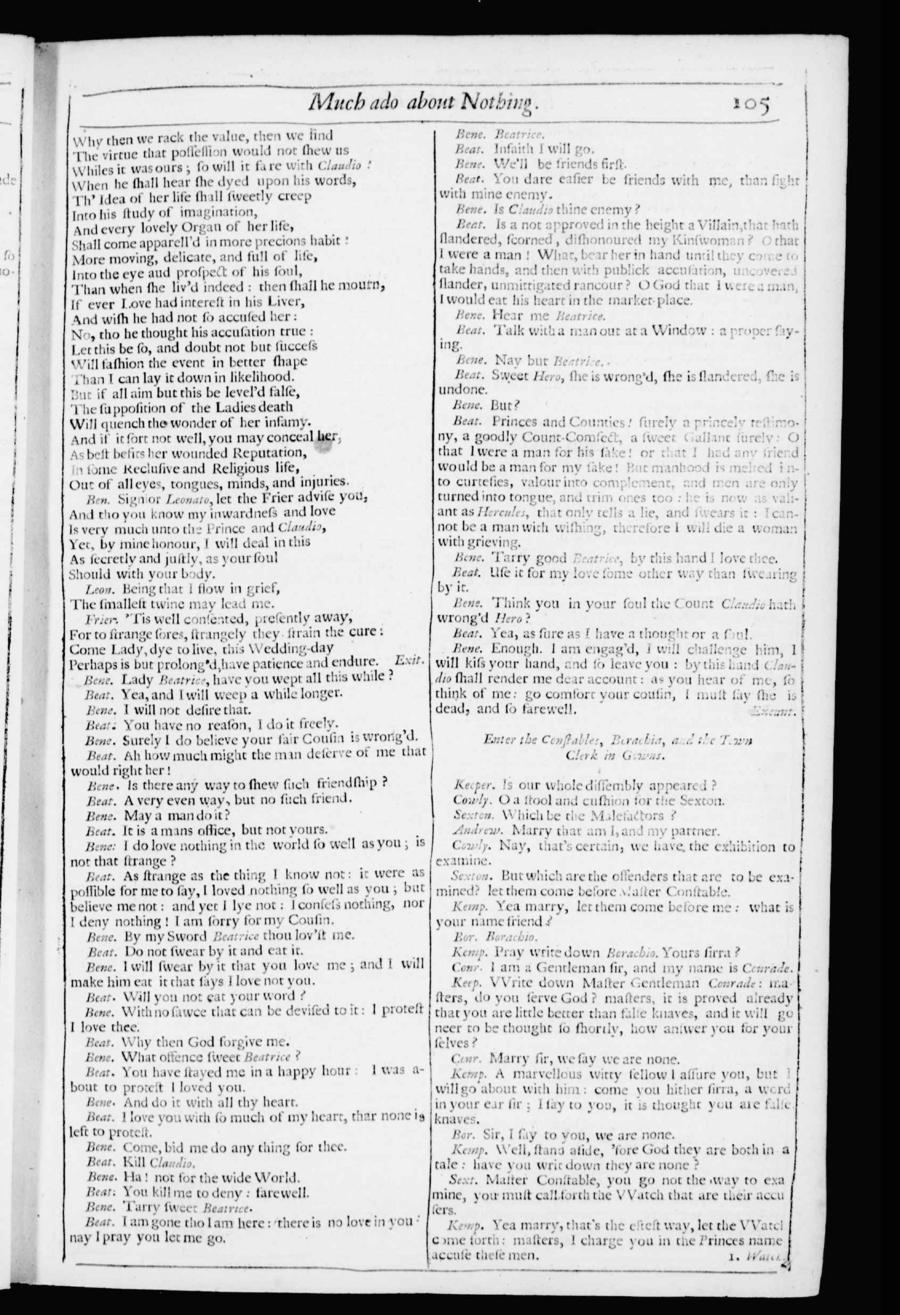 Much ado about Nothing.
105
Why then we rack the value, then we find
The virtue that possession would not shew us
Whiles it was ours; so will it fare with Claudio:
When he shall hear she dyed upon his words,
Th' Idea of her life shall sweetly creep
Into his study of imagination,
And every lovely Organ of her life,
Shall come apparell'd in more precions habit:
More moving, delicate, and full of life,
Into the eye aud prospect of his soul,
Than when she liv'd indeed: then shall he mourn,
If ever Love had interest in his Liver,
And wish he had not so accused her:
No, tho he thought his accusation true:
Let this be so, and doubt not but success
Will fashion the event in better shape
Than I can lay it down in likelihood.
But if all aim but this be level'd false,
The supposition of the Ladies death
Will quench the wonder of her infamy.
And if it sort not well, you may conceal her,
As best befits her wounded Reputation,
In some Reclusive and Religious life,
Out of all eyes, tongues, minds, and injuries.
Ben. Signior Leonato, let the Frier advise you,
And tho you know my inwardness and love
Is very much unto the Prince and Claudio,
Yet, by mine honour, I will deal in this
As secretly and justly, as your soul
Should with your body.
Leon. Being that I flow in grief,
The smallest twine may lead me.
Frier. 'Tis well consented, presently away,
For to strange sores, strangely they strain the cure:
Come Lady, dye to live, this Wedding-day
Perhaps is but prolong'd, have patience and endure. Exit.
Bene. Lady Beatrice, have you wept all this while?
Beat. Yea, and I will weep a while longer.
Bene. I will not desire that.
Beat. You have no reason, I do it freely.
Bene. Surely I do believe your fair Cousin is wrong'd.
Beat. Ah how much might the man deserve of me that
would right her!
Bene. Is there any way to shew such friendship?
Beat. A very even way, but no such friend.
Bene. May a man do it?
Beat. It is a mans office, but not yours.
Bene: I do love nothing in the world so well as you; is
not that strange?
Beat. As strange as the thing I know not: it were as
possible for me to say, I loved nothing so well as you; but
believe me not: and yet I lye not: I confess nothing, nor
I deny nothing! I am sorry for my Cousin.
Bene. By my Sword Beatrice thou lov'st me.
Beat. Do not swear by it and eat it.
Bene. I will swear by it that you love me; and I will
make him eat it that says I love not you.
Beat. Will you not eat your word?
Bene. With no sawce that can be devised to it: I protest
I love thee.
Beat. Why then God forgive me.
Bene. What offence sweet Beatrice?
Beat. You have stayed me in a happy hour: I was a-
bout to protest I loved you.
Bene. And do it with all thy heart.
Beat. I love you with so much of my heart, thar none is
left to protest.
Bene. Come, bid me do any thing for thee.
Beat. Kill Claudio.
Bene. Ha! not for the wide World.
Beat: You kill me to deny: farewell.
Bene. Tarry sweet Beatrice.
Beat. I am gone tho I am here: there is no love in you:
nay I pray you let me go.
Bene. Beatrice.
Beat. Infaith I will go.
Bene. We'll be friends first.
Beat. You dare easier be friends with me, than fight
with mine enemy.
Bene. Is Claudio thine enemy?
Beat. Is a not approved in the height a Villain, that hath
slandered, scorned, dishonoured my Kinswoman? O that
I were a man! What, bear her in hand until they come to
take hands, and then with publick accusation, uncovered
slander, unmitigated rancour? O God that I were a man,
I would eat his heart in the market-place.
Bene. Hear me Beatrice.
Beat. Talk with a man out at a Window: a proper say-
ing.
Bene. Nay but Beatrice.
Beat. Sweet Hero, she is wrong'd, she is slandered, she is
undone.
Bene. But?
Beat. Princes and Counties! surely a princely testimo-
ny, a goodly Count-Comfect, a sweet Gallant surely: O
that I were a man for his sake! or that I had any friend
would be a man for my sake! But manhood is melted in-
to curtesies, valour into complement, and men are only
turned into tongue, and trim ones too: he is now as vali-
ant as Hercules, that only tells a lie, and swears it: I can-
not be a man with wishing, therefore I will die a woman
with grieving.
Bene. Tarry good Beatrice, by this hand I love thee.
Beat. Use it for my love some other way than swearing
by it.
Bene. Think you in your soul the Count Claudio hath
wrong'd Hero?
Beat. Yea, as sure as I have a thought or a soul.
Bene. Enough. I am engag'd, I will challenge him, I
will kiss your hand, and so leave you: by this hand Clau-
dio shall render me dear account: as you hear of me, so
think of me: go comfort your cousin, I must say she is
dead, and so farewell. Exeunt.
Enter the Constables, Borachia, and the Town
Clerk in Gowns.
Keeper. Is our whole dissembly appeared?
Cowly. O a stool and cushion for the Sexton.
Sexton. Which be the Malefactors?
Andrew. Marry that am I, and my partner.
Cowly. Nay, that's certain, we have the exhibition to
examine.
Sexton. But which are the offenders that are to be exa-
mined? let them come before Master Constable.
Kemp. Yea marry, let them come before me: what is
your name friend?
Bor. Borachio.
Kemp. Pray write down Borachio. Yours sirra?
Conr. I am a Gentleman sir, and my name is Conrade.
Keep. VVrite down Master Gentleman Conrade: ma-
sters, do you serve God? masters, it is proved already
that you are little better than false knaves, and it will go
neer to be thought so shortly, how answer you for your
selves?
Conr. Marry sir, we say we are none.
Kemp. A marvellous witty fellow I assure you, but I
will go about with him: come you hither sirra, a word
in your ear sir; I say to you, it is thought you are false
knaves.
Bor. Sir, I say to you, we are none.
Kemp. Well, stand aside, 'fore God they are both in a
tale: have you writ down they are none?
Sext. Master Constable, you go not the way to exa
mine, you must call forth the VVatch that are their accu
sers.
Kemp. Yea marry, that's the eftest way, let the VVatch
come forth: masters, I charge you in the Princes name
accuse these men.
1. Watch